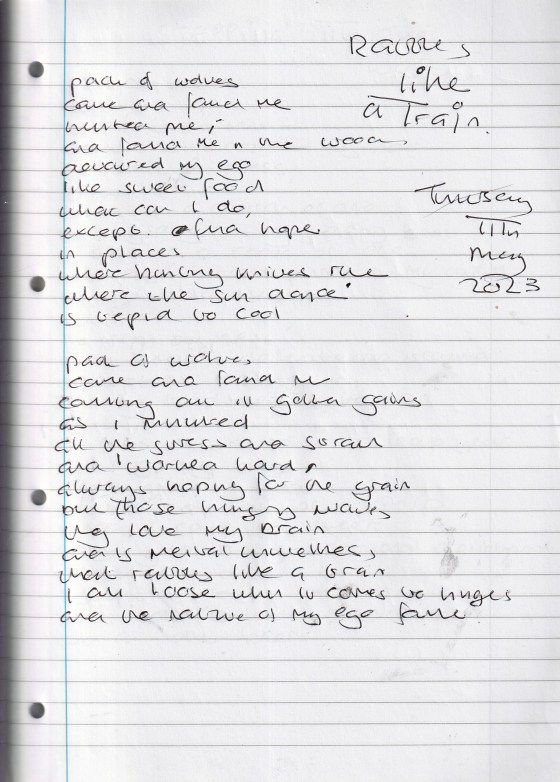 Rattles
like
a Train.
pack of wolves
came and found me
hunted me,
and found me in the woods,
devoured my ego
like sweet food
what can I do,
except find hope
in places
where hunting knives rule
where the sun dance
is tepid to cool
Thursday
11th
May
2023
pack of wolves,
came and found me
counting all ill gotten gains
as I
all the stress and strain
and worked hard,
always hoping for the grain
but those hungry wolves
they love my brain
and is mental
that rattles like a train
I am loose when it comes to hinges
and the nature of my ego fame